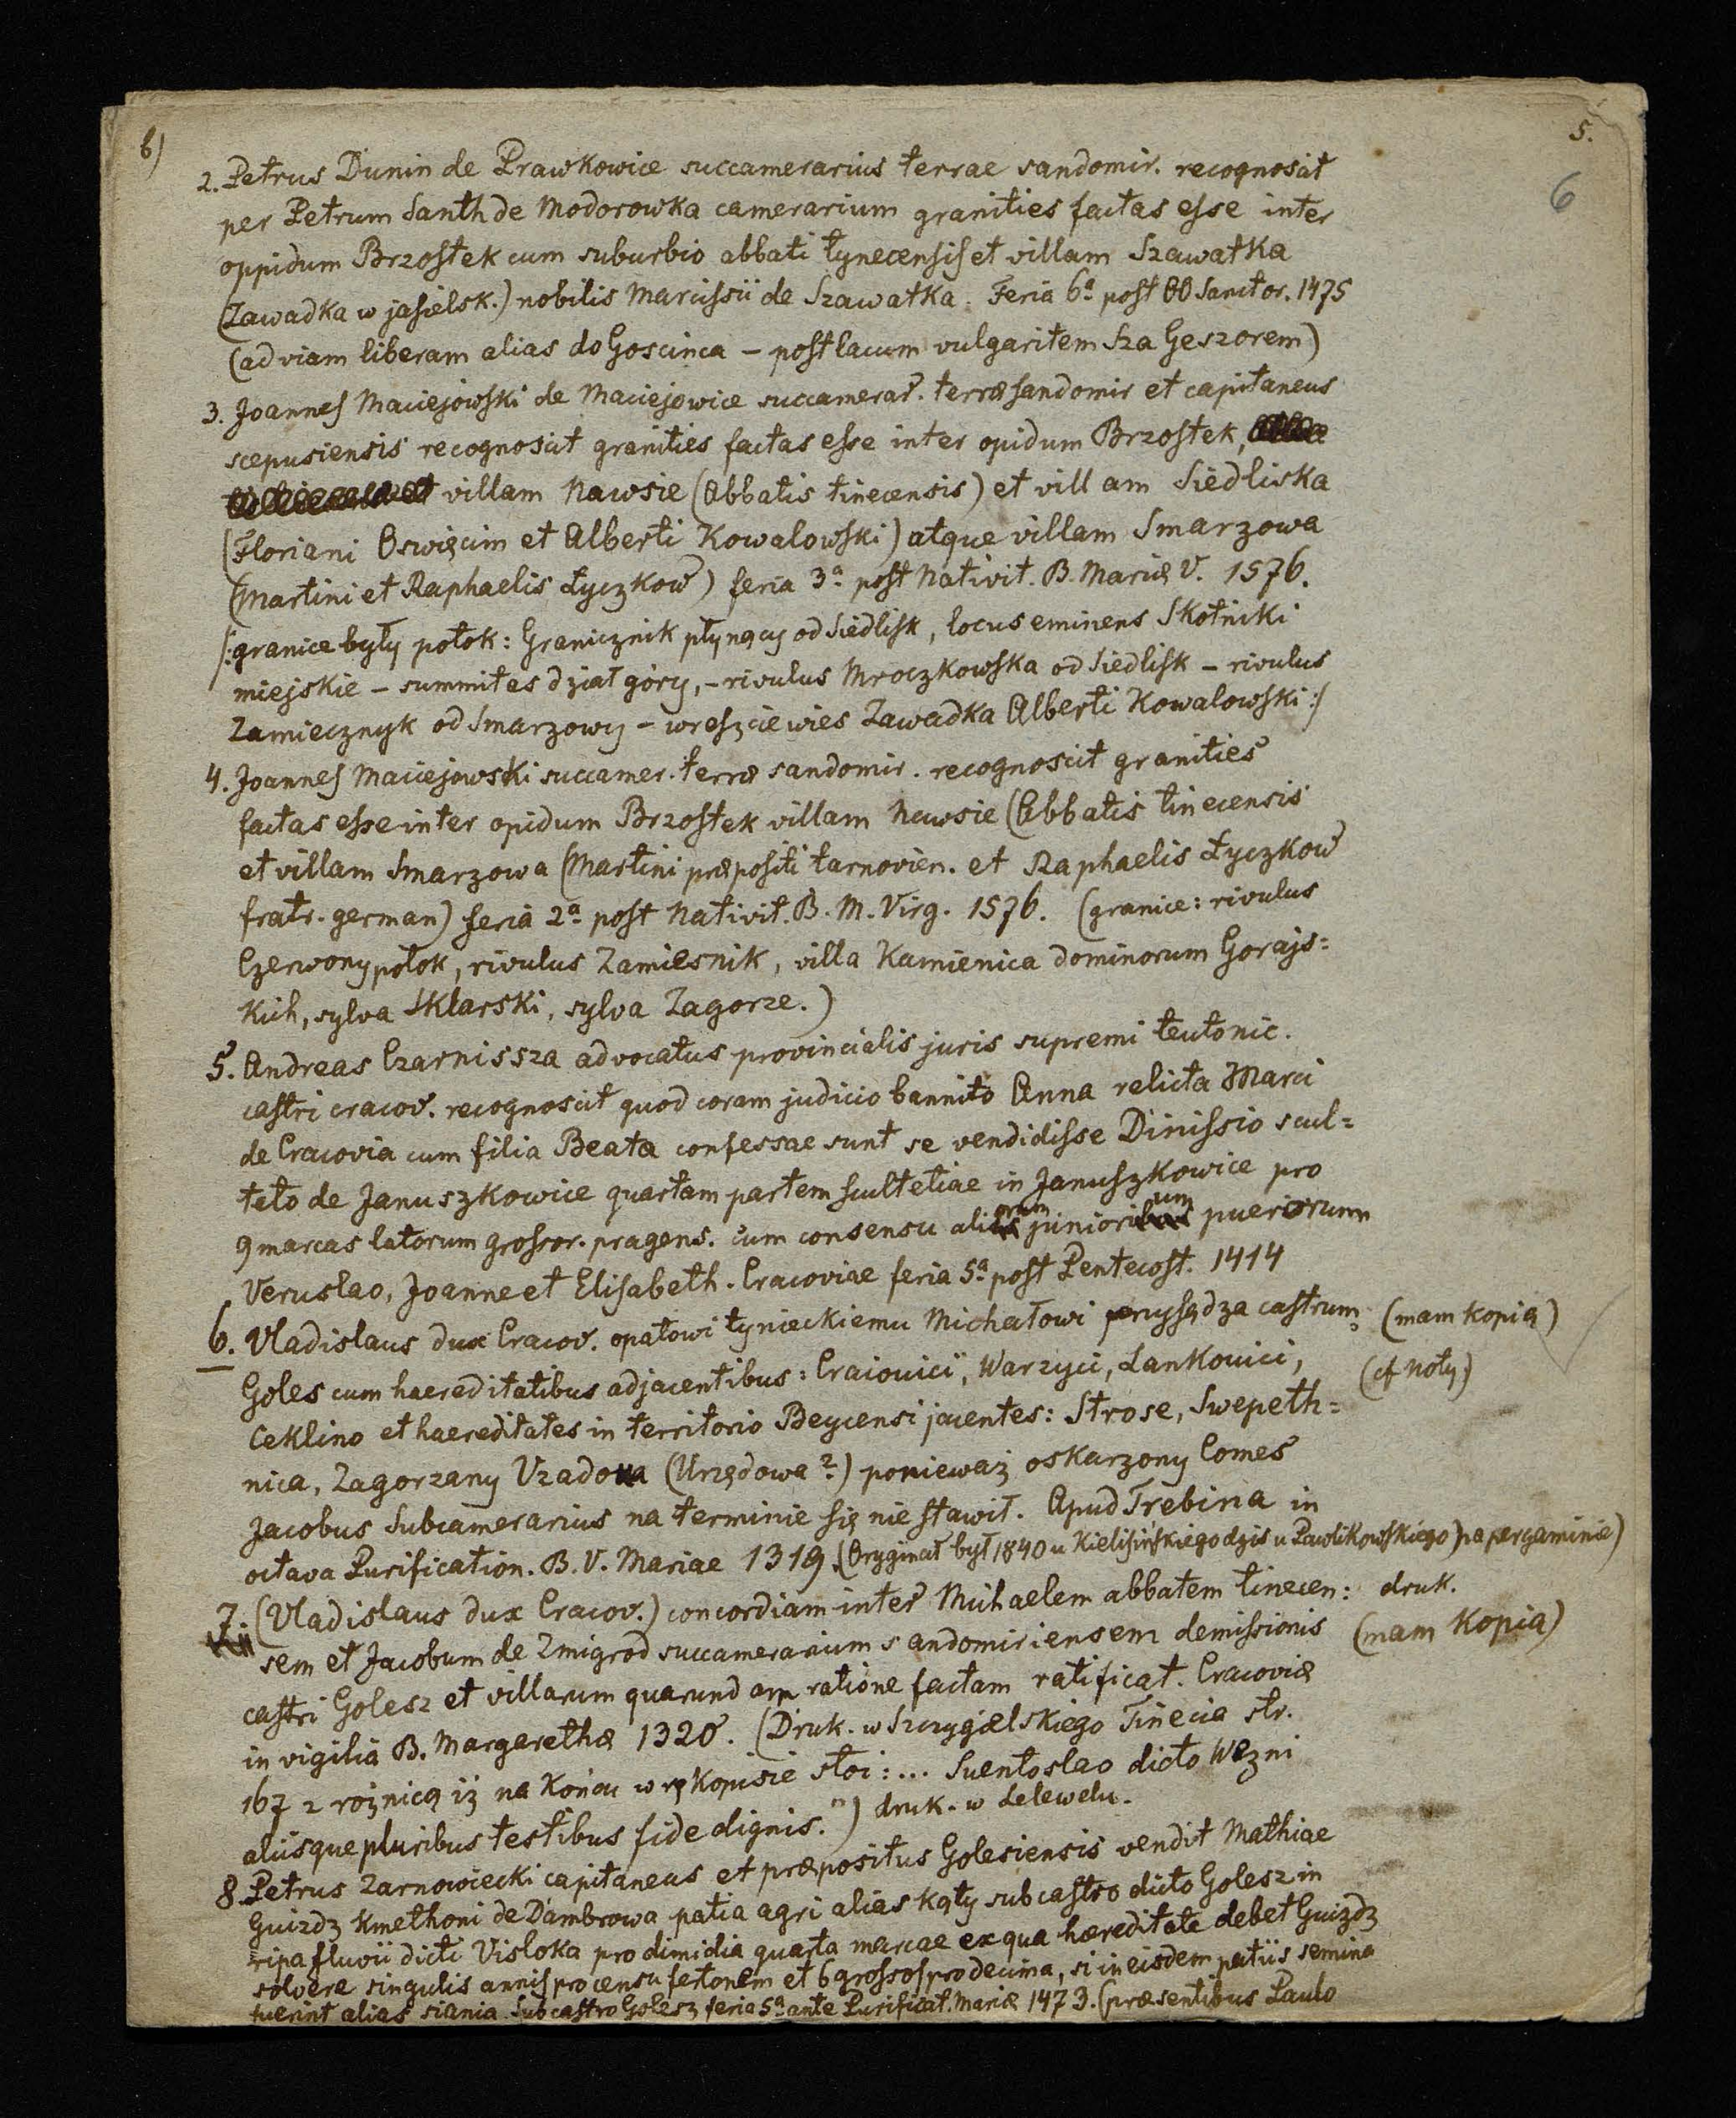 b)
5.
6
2. Petrus Dunin de Prawkowice succamerarius terrae sandomir. recognoscit
per Petrum Santh de Modorowka camerarium granities factas esse inter
oppidum Brzostek cum suburbio abbati tynecensis et villam Szawatka
(Zawadka w jasielsk.) nobilis Marcissii de Szawatka. Feria 6ª post OO Sanctor. 1475
(ad viam liberam alias do Goscinca – post lacum vulgaritem Sza Geszorem)
3. Joannes Maciejowski de Maciejowice succamerar. terræ sandomir et capitaneus
scepusiensis recognoscit granities factas esse inter opidum Brzostek,
villam Nawsie (Abbatis tinecensis) et villam Siedliska
(Floriani Oswięcim et Alberti Kowalowski) atque villam Smarzowa
(Martini et Raphaelis Łyczkow) feria 3ª post Nativit. B. Mariæ V. 1576.
/:granice były potok: Granicznik płynący od Siedlisk, locus eminens Skotniki
miejskie – summites dział góry, – rivulus Mroczkowska od Siedlisk – rivulus
Zamiecznyk od Smarzowy – wreszcie wies Zawadka Alberti Kowalowski:/
4. Joannes Maciejowski succamer. terræ sandomir. recognoscit granities
factas esse inter opidum Brzostek villam Nawsie (Abbatis tinecensis
et villam Smarzowa (Martini præpositi tarnovien. et Raphaelis Łyczkow
fratr. german) feria 2ª post Nativit. B. M. Virg. 1576. (granice: rivulus
Czerwony potok, rivulus Zamiesnik, villa Kamienica dominorum Gorajs=
kich, sylva Sklarski, sylva Zagorze.)
5. Andreas Czarnissza advocatus provincialis juris supremi teutonic.
castri cracov. recognoscit quod coram judicio bannito Anna relicta Marci
de Cracovia cum filia Beata confessae sunt se vendidisse Dinissio scul=
teto de Januszkowice quartam partem scultetiae in Januszkowice pro
9 marcas latorum grossor. pragens. cum consensu aliorum juniorum puerorum
Veruslao, Joanne et Elisabeth. Cracoviae feria 5ª post Pentecost. 1414
6. Vladislaus dux Cracov. opatowi tynieckiemu Michałowi przysądza castrum (mam kopią)
Goles cum haereditatibus adjacentibus: Craiouici, Warzyci, Lankouici, (cf noty)
Ceklino et haereditates in territorio Beycensi jacentes: Strose, Swepeth=
nica, Zagorzany Vzadowa (Urzędowa?) ponieważ oskarzony Comes
Jacobus Subcamerarius na terminie się nie stawił. Apud Trebina in
octava Purification. B. V. Mariae 1319. (Oryginał był 1840 u Kielisińskiego dziś u Pawlikowskiego) na pergaminie)
7. (Vladislaus dux Cracov.) concordiam inter Michaelem abbatem tinecen: druk.
sem et Jacobum de Zmigrod succamerarium sandomiriensem demissionis (mam kopią)
castri Golesz et villarum quarundam ratione factam ratificat. Cracoviæ
in vigilia B. Margarethæ 1320. (Druk. w Szczygielskiego Tinecia str.
167 z rożnicą iż na końcu w rękopisie stoi: ... Suentoslao dicto Wezni
aliisque pluribus testibus fide dignis.") druk. w Lelewelu.
8. Petrus Zarnowiecki capitaneus et præpositus Golesiensis vendit Mathiae
Guizdz Kmethoni de Dambrowa patia agri alias kąty sub castro dicto Golesz in
ripa fluvii dicti Visloka pro dimidia quarta marcae ex qua hæreditate debet Guizdz
solvere singulis annis pro censu fertonem et 6 grossos pro decima, si in eisdem patiis semina
fuerint alias siania. Sub castro Golesz feria 5ª ante Purificat. Mariæ 1473. (præsentibus Paulo